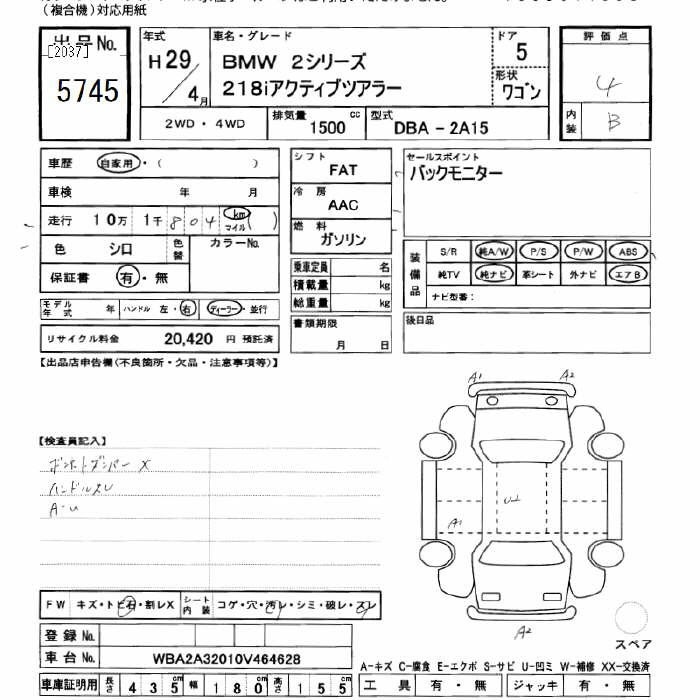 （複合機）対応用紙
出品No.
[2037]
5745
年式
H 29 / 4月
車名・グレード
BMW 2シリーズ
218iアクティブツアラー
ドア 5
形状 ワゴン
評価点
4
内装 B
2WD・4WD
排気量 1500 cc
型式 DBA - 2A15
車歴 自家用・（ ）
車検 年 月
走行 10万 1千 8 0 4 km マイル ( )
色 シロ 色替 カラーNo.
保証書 有・無
モデル年式 年 ハンドル 左・右 ディーラー・並行
リサイクル料金 20,420 円 預託済
シフト FAT
冷房 AAC
燃料 ガソリン
乗車定員 名
積載量 kg
総重量 kg
書類期限
月 日
セールスポイント
バックモニター
装備品
S/R 純A/W P/S P/W ABS
純TV 純ナビ 革シート 外ナビ エアB
ナビ型番:
後日品
【出品店申告欄(不良箇所・欠品・注意事項等)】
【検査員記入】
ボンネットダンパー X
ハンドルスレ
A-U
A1 A2
U2
A1
A2
スペア
FW キズ・トビ石・割レX シート内装 コゲ・穴・汚レ・シミ・破レ・スレ
登録No.
車台No. WBA2A32010V464628
車庫証明用 長さ 435cm 幅 180cm 高さ 155
A-キズ C-腐食 E-エクボ S-サビ U-凹ミ W-補修 XX-交換済
工具 有・無 ジャッキ 有・無